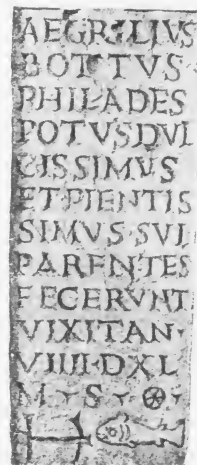 AEGRILIVS
BOTTVS
PHILADES
POTVSDVL
CISSIMVS
ETPIENTIS
SIMVS·SVI
PARENTES
FECERVNT
VIXITAN·
VIIII·DXL
M·S·